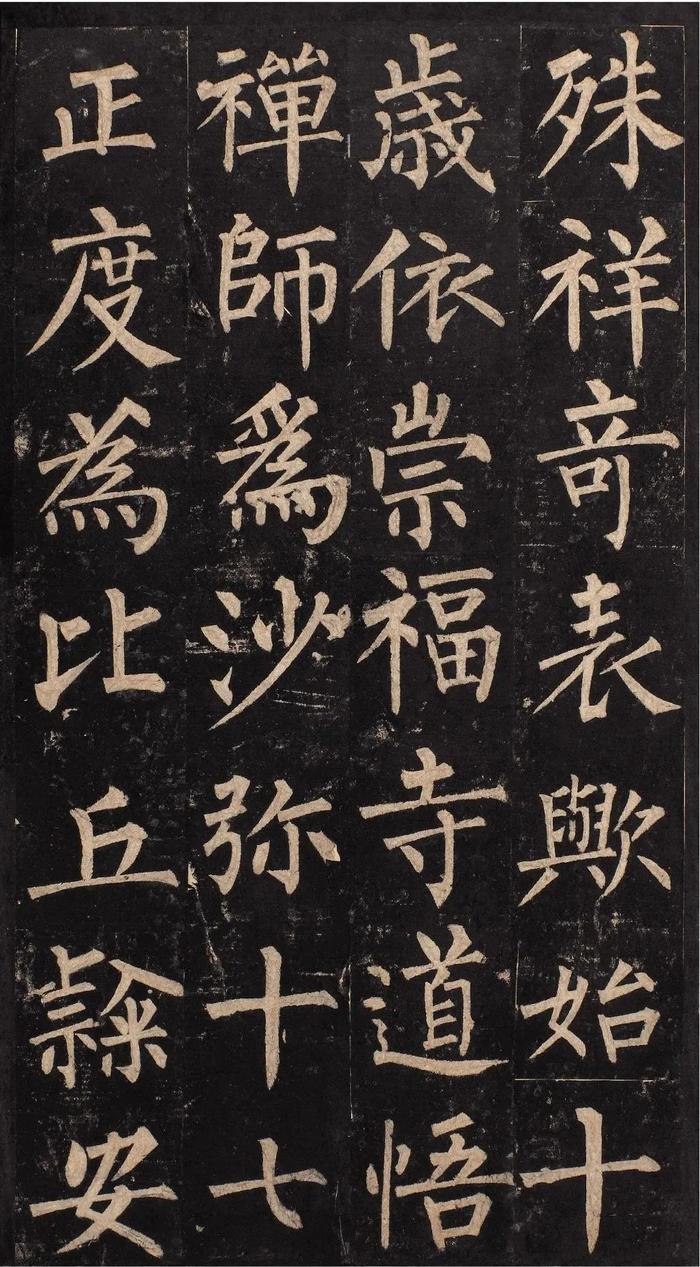 殊祥奇表歟始十
歲依崇福寺道悟
禪師為沙弥十七
正度為比丘隸安